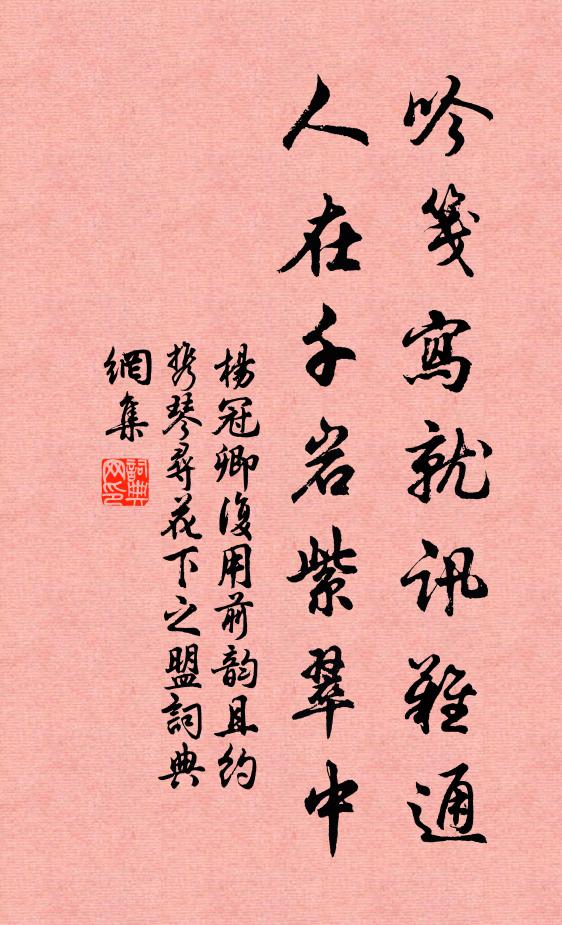 吟箋寫就訊難通
人在千岩紫翠中
楊冠卿復用前韵且約
携琴尋花下之盟詞典
網集
詞典网印